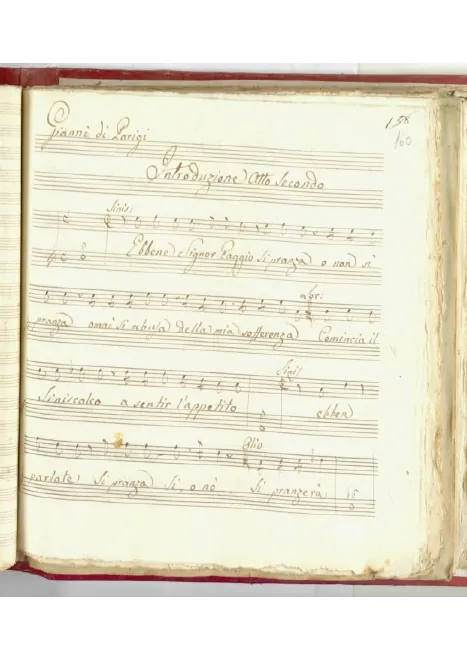 Gianni di Parigi
158
160
Introduzione Atto Secondo
Sinis:
Ebbene Signor Paggio si pranza o non si
Lor:
pranza omai si abusa della mia sofferenza Comincia il
Sini:
Siniscalco a sentir l'appetito ebben
Oliv
parlate si pranza si, o nò si pranzerà